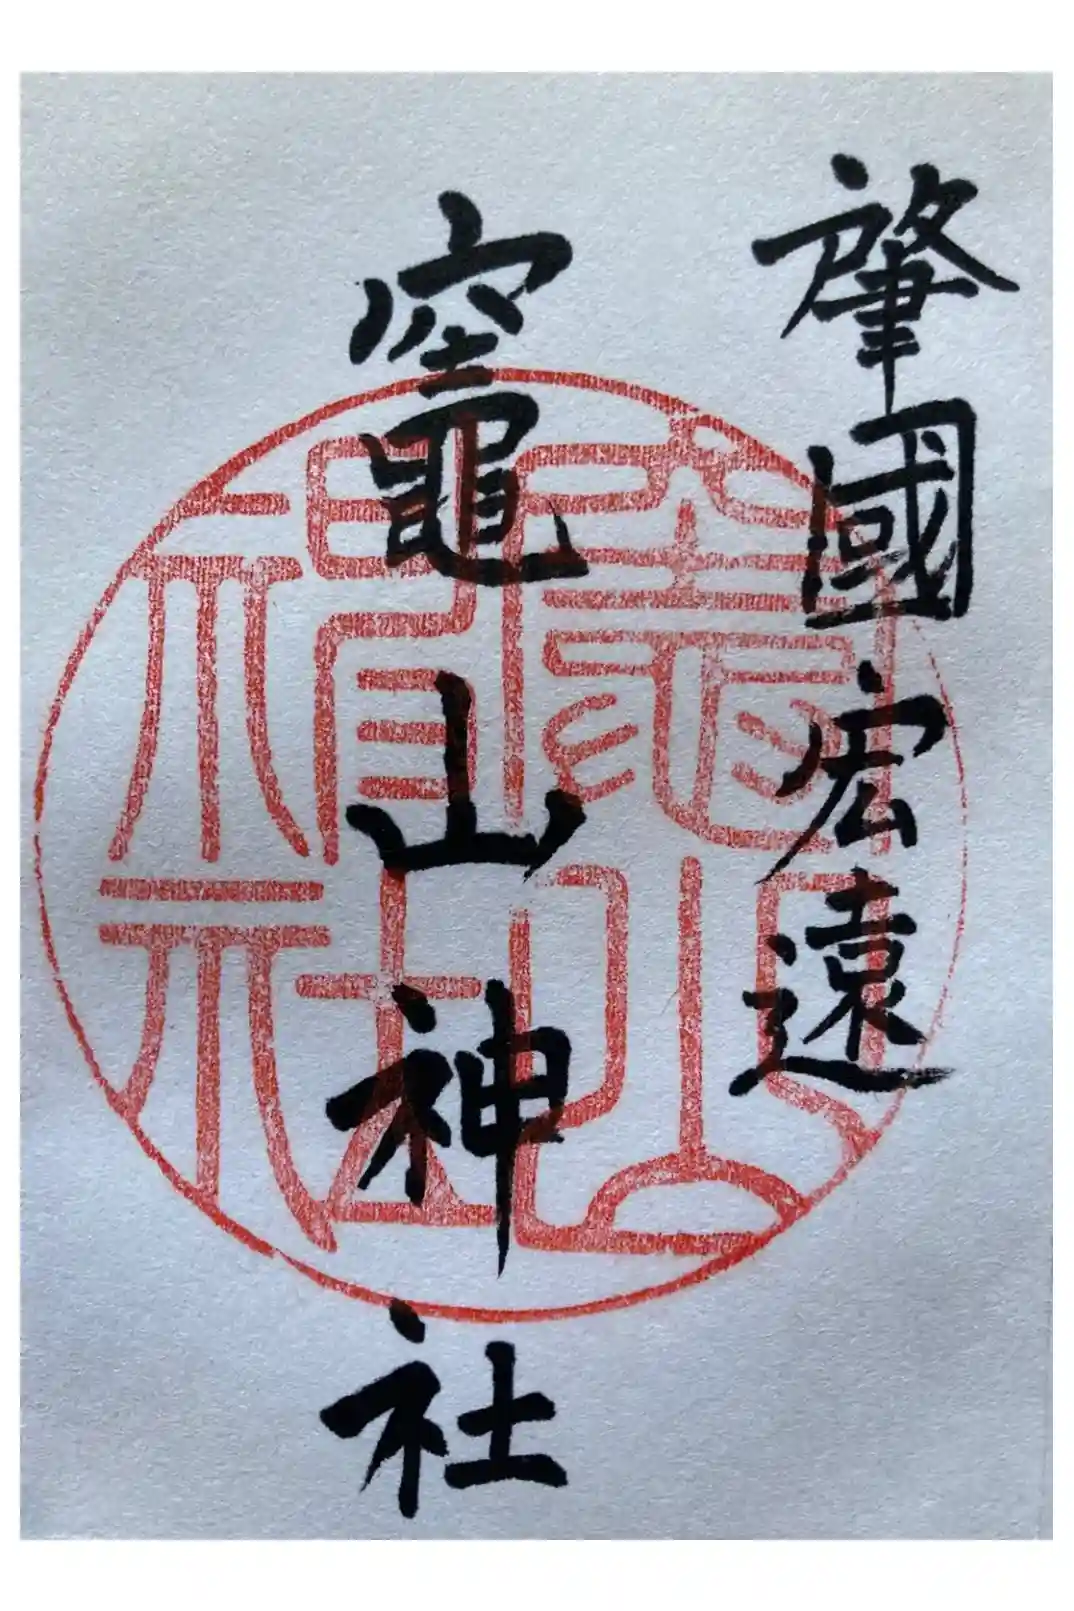 肇國宏遠
竈山神社
竈山神社